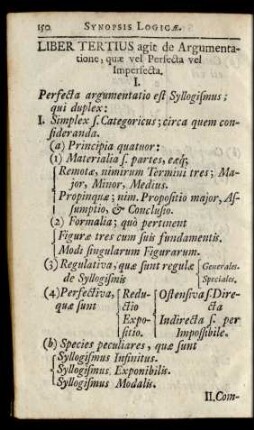 150 SYNOPSIS LOGICÆ.
LIBER TERTIUS agit de Argumenta-
tione, quæ vel Perfecta vel
Imperfecta.
I.
Perfecta argumentatio eſt Syllogiſmus;
qui duplex:
I. Simplex ſ. Categoricus; circa quem con-
ſideranda.
(a) Principia quatuor:
(1) Materialia ſ. partes, eæq;
Remotæ, nimirum Termini tres; Ma-
jor, Minor, Medius.
Propinquæ; nim. Propoſitio major, Aſ-
ſumptio, & Concluſio.
(2) Formalia; quò pertinent
Figuræ tres cum ſuis fundamentis.
Modi ſingularum Figurarum.
(3) Regulativa, quæ ſunt regulæ Generales.
de Syllogiſmis Speciales.
(4) Perfectiva, Redu- Oſtenſiva ſ. Dire-
quæ ſunt ctio cta
Expo- Indirecta ſ. per
ſitio. Impoſſibile.
(b) Species peculiares, quæ ſunt
Syllogiſmus Infinitus.
Syllogiſmus Exponibilis.
Syllogiſmus Modalis.
II. Com-